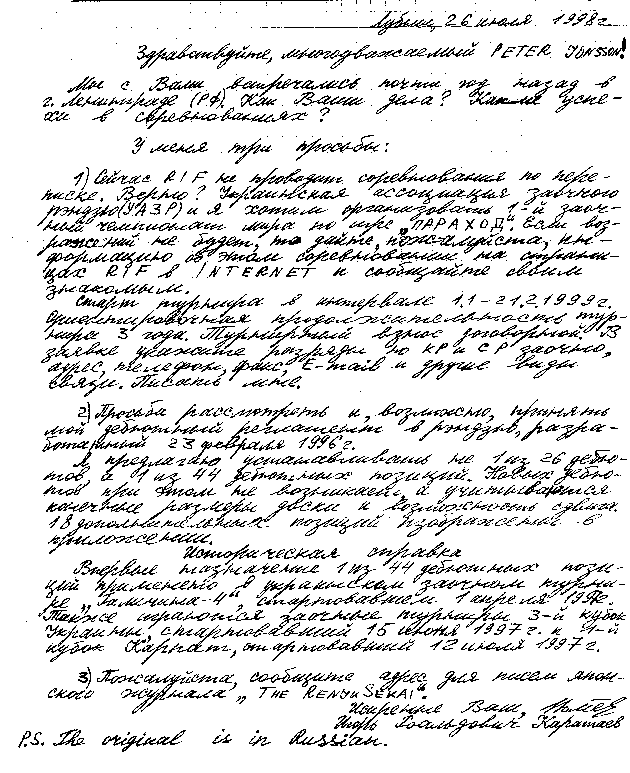 Лубны, 26 июля 1998г.
Здравствуйте, многоуважаемый PETER JONSSON!
Мы с Вами встречались почти год назад в
г. Ленинграде (РФ). Как Ваши дела? Каковы успе-
хи в соревнованиях?
У меня три просьбы:
1) Сейчас RIF не проводит соревнования по пере-
писке. Верно? Украинская ассоциация заочного
рэндзю (УАЗР) и я хотим организовать 1-й заоч-
ный чемпионат мира по игре „ПАРАХОД". Если воз-
ражений не будет, то дайте, пожалуйста, ин-
формацию об этом соревновании на страни-
цах RIF в INTERNET и сообщайте своим
знакомым.
Старт турнира в интервале 1.1-21.2.1999г.
Ориентировочная продолжительность тур-
нира 3 года. Турнирный взнос договорной. В
заявке укажите разряды по КР и СР заочно,
адрес, телефон, факс, E-mail и другие виды
связи. Писать мне.
2) Просьба рассмотреть и, возможно, принять
мой дебютный регламент в рэндзю, разра-
ботанный 23 февраля 1996г.
Я предлагаю устанавливать не 1 из 26 дебю-
тов, а 1 из 44 дебютных позиций. Новых дебю-
тов при этом не возникает, а учитываются
конечные размеры доски и возможность сдвига.
18 дополнительных позиций изображены в
приложении.
Историческая справка
Впервые назначение 1 из 44 дебютных пози-
ций применено в украинском заочном турни-
ре „Галичина-4", стартовавшем 1 апреля
Также играются заочные турниры 3-й кубок
Украины, стартовавший 15 июня 1997г. и 4-й
кубок Карпат, стартовавший 12 июля 1997г.
3) Пожалуйста, сообщите адрес для писем япон-
ского журнала „THE RENJU SEKAI".
Искренне Ваш,
Игорь Гоальдович Каратаев
P.S. The original is in Russian.